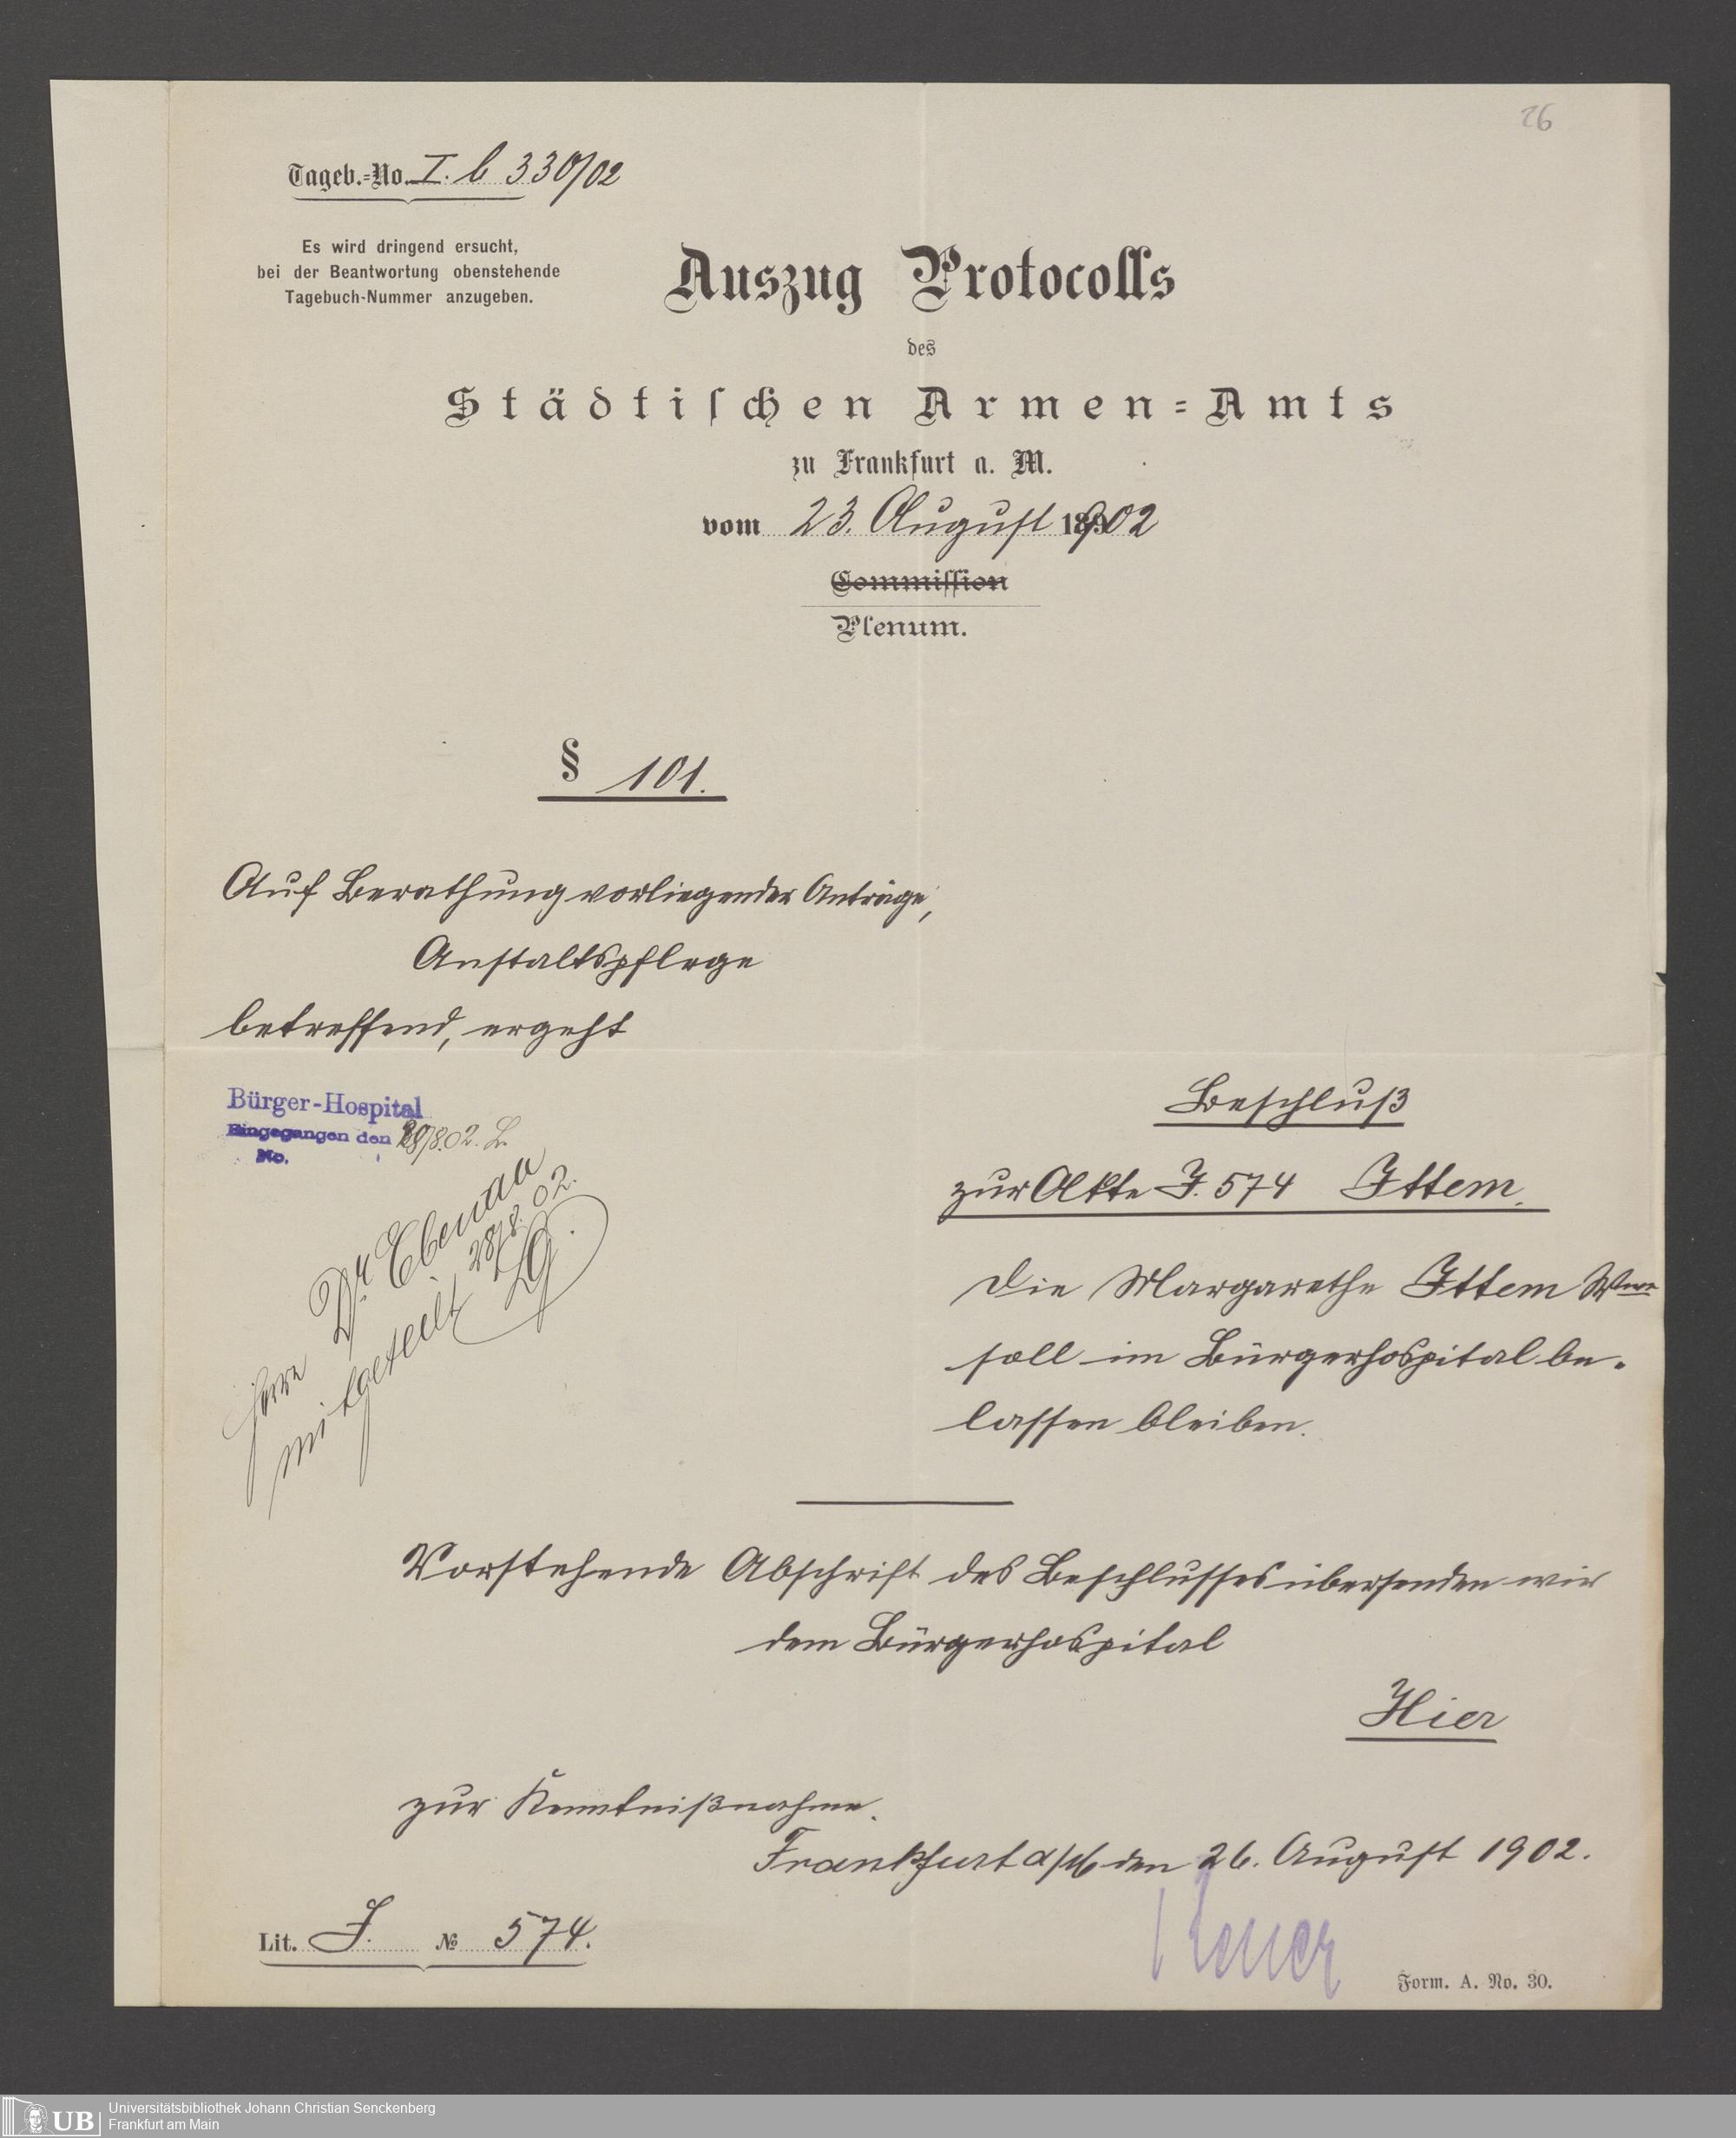 26
Tageb.-No. I. b 330/02
Es wird dringend ersucht,
bei der Beantwortung obenstehende
Tagebuch-Nummer anzugeben.
Auszug Protocolls
des
Städtischen Armen-Amts
zu Frankfurt a. M.
vom 23. August 1902
Commission
Plenum.
§ 101.
Auf Berathung vorliegender Anträge,
Anstaltspflege
betreffend, ergeht
Bürger-Hospital
Eingegangen den 28/8.02. L.
No.
Herrn Dr. Ebenau
mitgeteilt 28/8.02.
Beschluß
zur Akte J. 574 Ittem.
Die Margarethe Ittem Wwe
soll im Bürgerhospital be-
lassen bleiben.
Vorstehende Abschrift des Beschlusses übersenden wir
dem Bürgerhospital
Hier
zur Kenntnißnahme.
Frankfurt a/M den 26. August 1902.
Lit. J. № 574.
Form. A. No. 30.
UB
Universitätsbibliothek Johann Christian Senckenberg
Frankfurt am Main